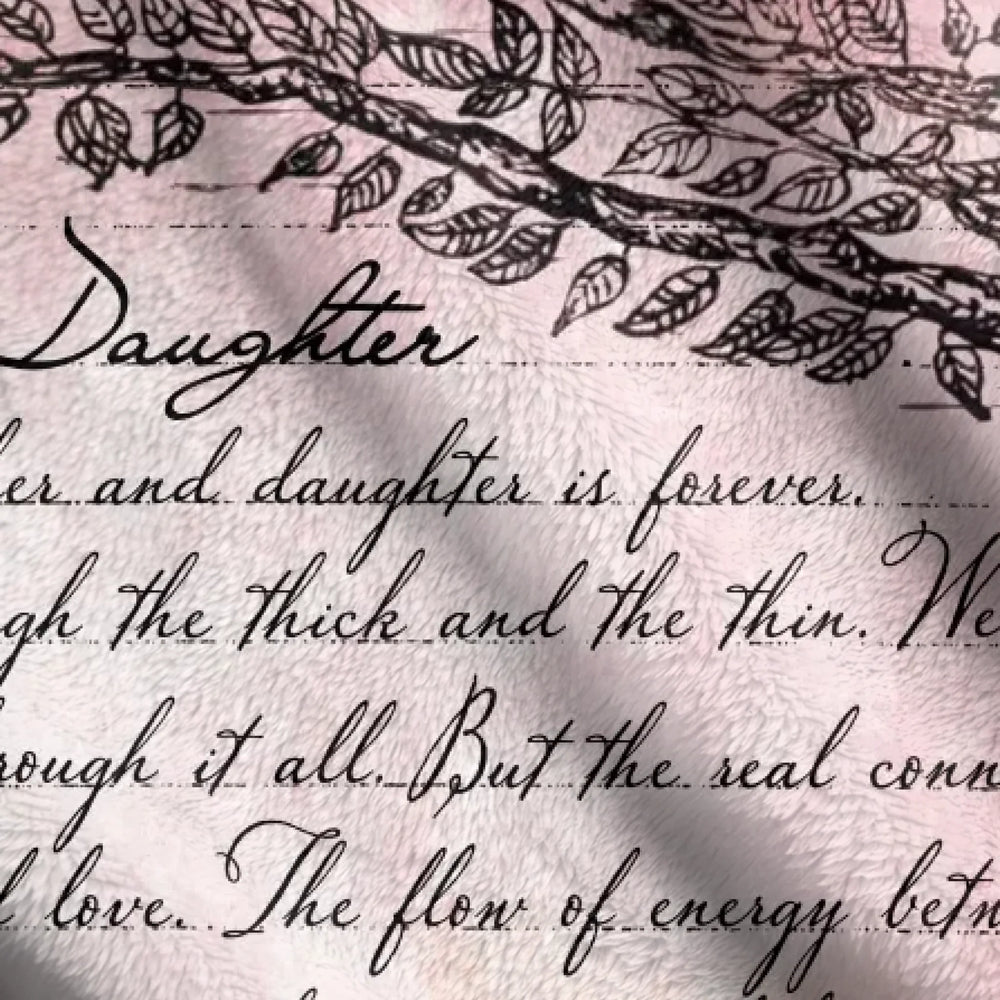 Daughter
er and daughter is forever.
gh the thick and the thin. We
rough it all. But the real conn
love. The flow of energy betw